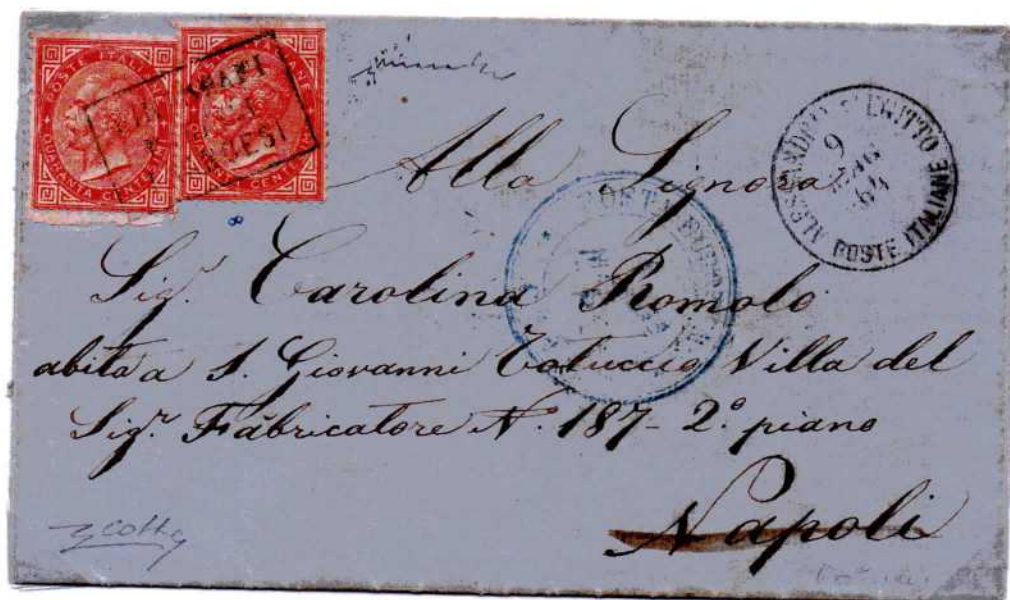 POSTE ITALIANE
QUARANTA CENTESIMI
POSTE ITALIANE
QUARANTA CENTESIMI
ALESSANDRIA D'EGITTO
9
MAG
64
POSTE ITALIANE
Alla Signora
Sig.ʳ Carolina Romolo
abita a S. Giovanni Toluccio Villa del
Sig.ʳ Fabricatore N. 187 - 2.º piano
Napoli